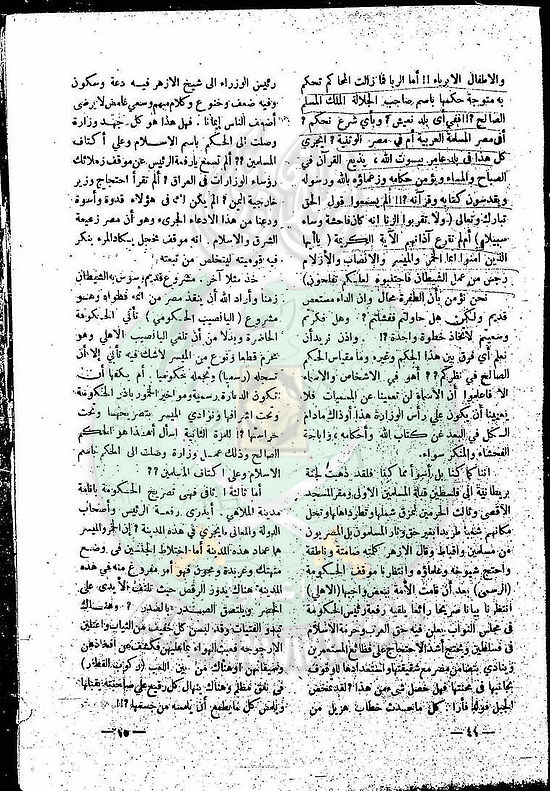 والاطفال الابرياء !! أما الربا فما زالت المحاكم تحكم
به متوجة حكمها باسم صاحب الجلالة الملك المسلم
الصالح ؟!! ففي أى بلد نعيش ؟ وبأى شرع نحكم ؟
أفى مصر المسلمة العربية أم فى مصر الوثنية ؟ أيجرى
كل هذا فى بلد عامر ببيوت الله ، يذيع القرآن فى
الصباح والمساء ويؤمن حكامه وزعماؤه بالله ورسوله
ويقدسون كتابه وقرآنه ؟!! ألم يسمعوا قول الحق
تبارك وتعالى ( ولا تقربوا الزنا انه كان فاحشة وساء
سبيلا ) أم لم تقرع آذانهم الآية الكريمة ( ياأيها
الذين آمنوا إنما الخمر والميسر والانصاب والأزلام
رجس من عمل الشيطان فاجتنبوه لعلكم تفلحون )
نحن نؤمن بأن الطفرة محال وان الداء مستعص
قديم ولكن هل حاولتم ففشلتم ؟ وهل فكرتم
وصممتم لاتخاذ خطوة واحدة ؟! . واذن نريد أن
نعلم أى فرق بين هذا الحكم وغيره وما مقياس الحكم
الصالح فى نظركم ؟؟ أهو فى الاشخاص والاسماء
الا فاعلموا أن الاسماء لن تعمينا عن المسميات فلا
يعنينا أن يكون على رأس الوزارة هذا أو ذاك مادام
الكل فى البعد عن كتاب الله وأحكامه واباحة
الفحشاء والمنكر سواء .
اننا كما كنا بل أسوأ مما كنا . فلقد ذهبت لجنة
بريطانية الى فلسطين قبلة المسلمين الاولى ومقر المسجد
الأقصى وثالث الحرمين لتمزق شملها وتطرد أهلها وتحل
مكانهم شعبا طريدا بغير حق وثار المسلمون بل المصريون
من مسلمين وأقباط وقال الازهر كلمته صامتة وناطقة
واحتج شيوخه وعلماؤه وانتظرنا موقف الحكومة
(الرسمى) بعد أن قامت الأمة بتعبيرها (الاهلى)
انتظرنا بيانا صريحا رائعا يلقيه رفعة رئيس الحكومة
فى مجلس النواب يعلن فيه حق العرب وحرمة الاسلام
فى فلسطين ويحتج أشد الاحتجاج على فظائع المستعمرين
وينادى بتضامن مصر مع شقيقتها واستعدادها للوقوف
بجانبها فى محنتها فهل حصل شىء من هذا ؟ لقد تمخض
الجبل فولد فأرا . كل ما حدث خطاب هزيل من
— ٤٤ —
رئيس الوزراء الى شيخ الازهر فيه دعة وسكون
وفيه ضعف وخنوع وكلام مبهم وسعى غامض لا يرضى
أضعف الناس إيمانا . فهل هذا هو كل جهد وزارة
وصلت الى الحكم باسم الاسلام وعلى أكتاف
المسلمين ؟؟ ألم تسمع يارفعة الرئيس عن موقف زملائك
رؤساء الوزارات فى العراق ؟ ألم تقرأ احتجاج وزير
خارجية اليمن ؟ ألم يكن لك فى هؤلاء قدوة وأسوة
ودعنا من هذا الادعاء الجرىء وهو أن مصر زعيمة
الشرق والاسلام . انه موقف مخجل يكاد المرء ينكر
فيه قوميته ليتخلص من تبعته .
خذ مثلا آخر . مشروع قديم سوس به الشيطان
زمنا وأراد الله أن ينقذ مصر من اثمه فطواه وهو
مشروع ( اليانصيب الحكومى ) تأتى الحكومة
الحاضرة وبدلا من أن تلغى اليانصيب الاهلى وهو
محرم قطعا ونوع من الميسر لا شك فيه تأبى إلا أن
تسجله (رسميا) وتجعله حكوميا . أم يكفها أن
تكون الدعارة رسمية ومواخير الخمور باذن الحكومة
وتحت اشرافها ونوادى الميسر بتصريحها وتحت
حراستها ؟! للمرة الثانية أسأل أهذا هو الحكم
الصالح وذلك عمل وزارة وصلت الى الحكم باسم
الاسلام وعلى أكتاف المسلمين ؟؟
أما ثالثة الاثافى فهى تصريح الحكومة باقامة
مدينة الملاهى . أيدرى رفعة الرئيس وأصحاب
الدولة والمعالى ما يجرى فى هذه المدينة ؟ إن الخمر والميسر
هما عماد هذه المدينة أما اختلاط الجنسين فى وضع
متهتك وعربدة ومجون فهو أمر مفروغ منه فى هذه
المدينة هناك بدون الرقص حيث تلتف الأيدى على
الخصر ويلتصق الصدر بالصدر ؟ وهناك
تبدو الفتيات وقد لبسن كل خفيف من الثياب واعتلين
الارجوحة فعبث الهواء بملابسهن فكشف عن أفخاذهن
وسيقانهن وهناك من بين اللعب (ركوب القطار)
فى نفق مظلم وهناك ينهال كل رفيع على صاحبته يقبلها
— ٤٥ —